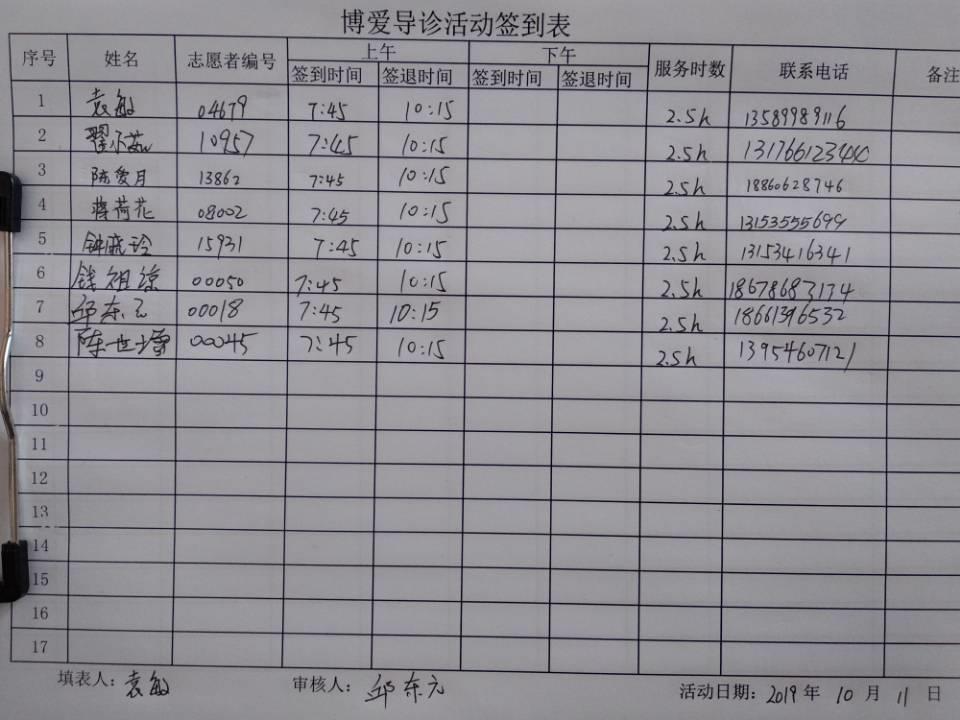 博爱导诊活动签到表
序号 姓名 志愿者编号 上午 下午 服务时数 联系电话 备注
签到时间 签退时间 签到时间 签退时间
1 袁敏 04679 7:45 10:15 2.5h 13589989116
2 10957 7:45 10:15 2.5h
3 陈爱月 13862 7:45 10:15 2.5h 18860628746
4 蒋荷花 08002 7:45 10:15 2.5h 13153555699
5 钟晓玲 15931 7:45 10:15 2.5h 13153416341
6 钱祖琼 00050 7:45 10:15 2.5h 18678683174
7 邱东元 00018 7:45 10:15 2.5h 18661396532
8 00045 7:45 10:15 2.5h 13954607121
9
10
11
12
13
14
15
16
17
填表人：袁敏 审核人：邱东元 活动日期：2019年10月11日